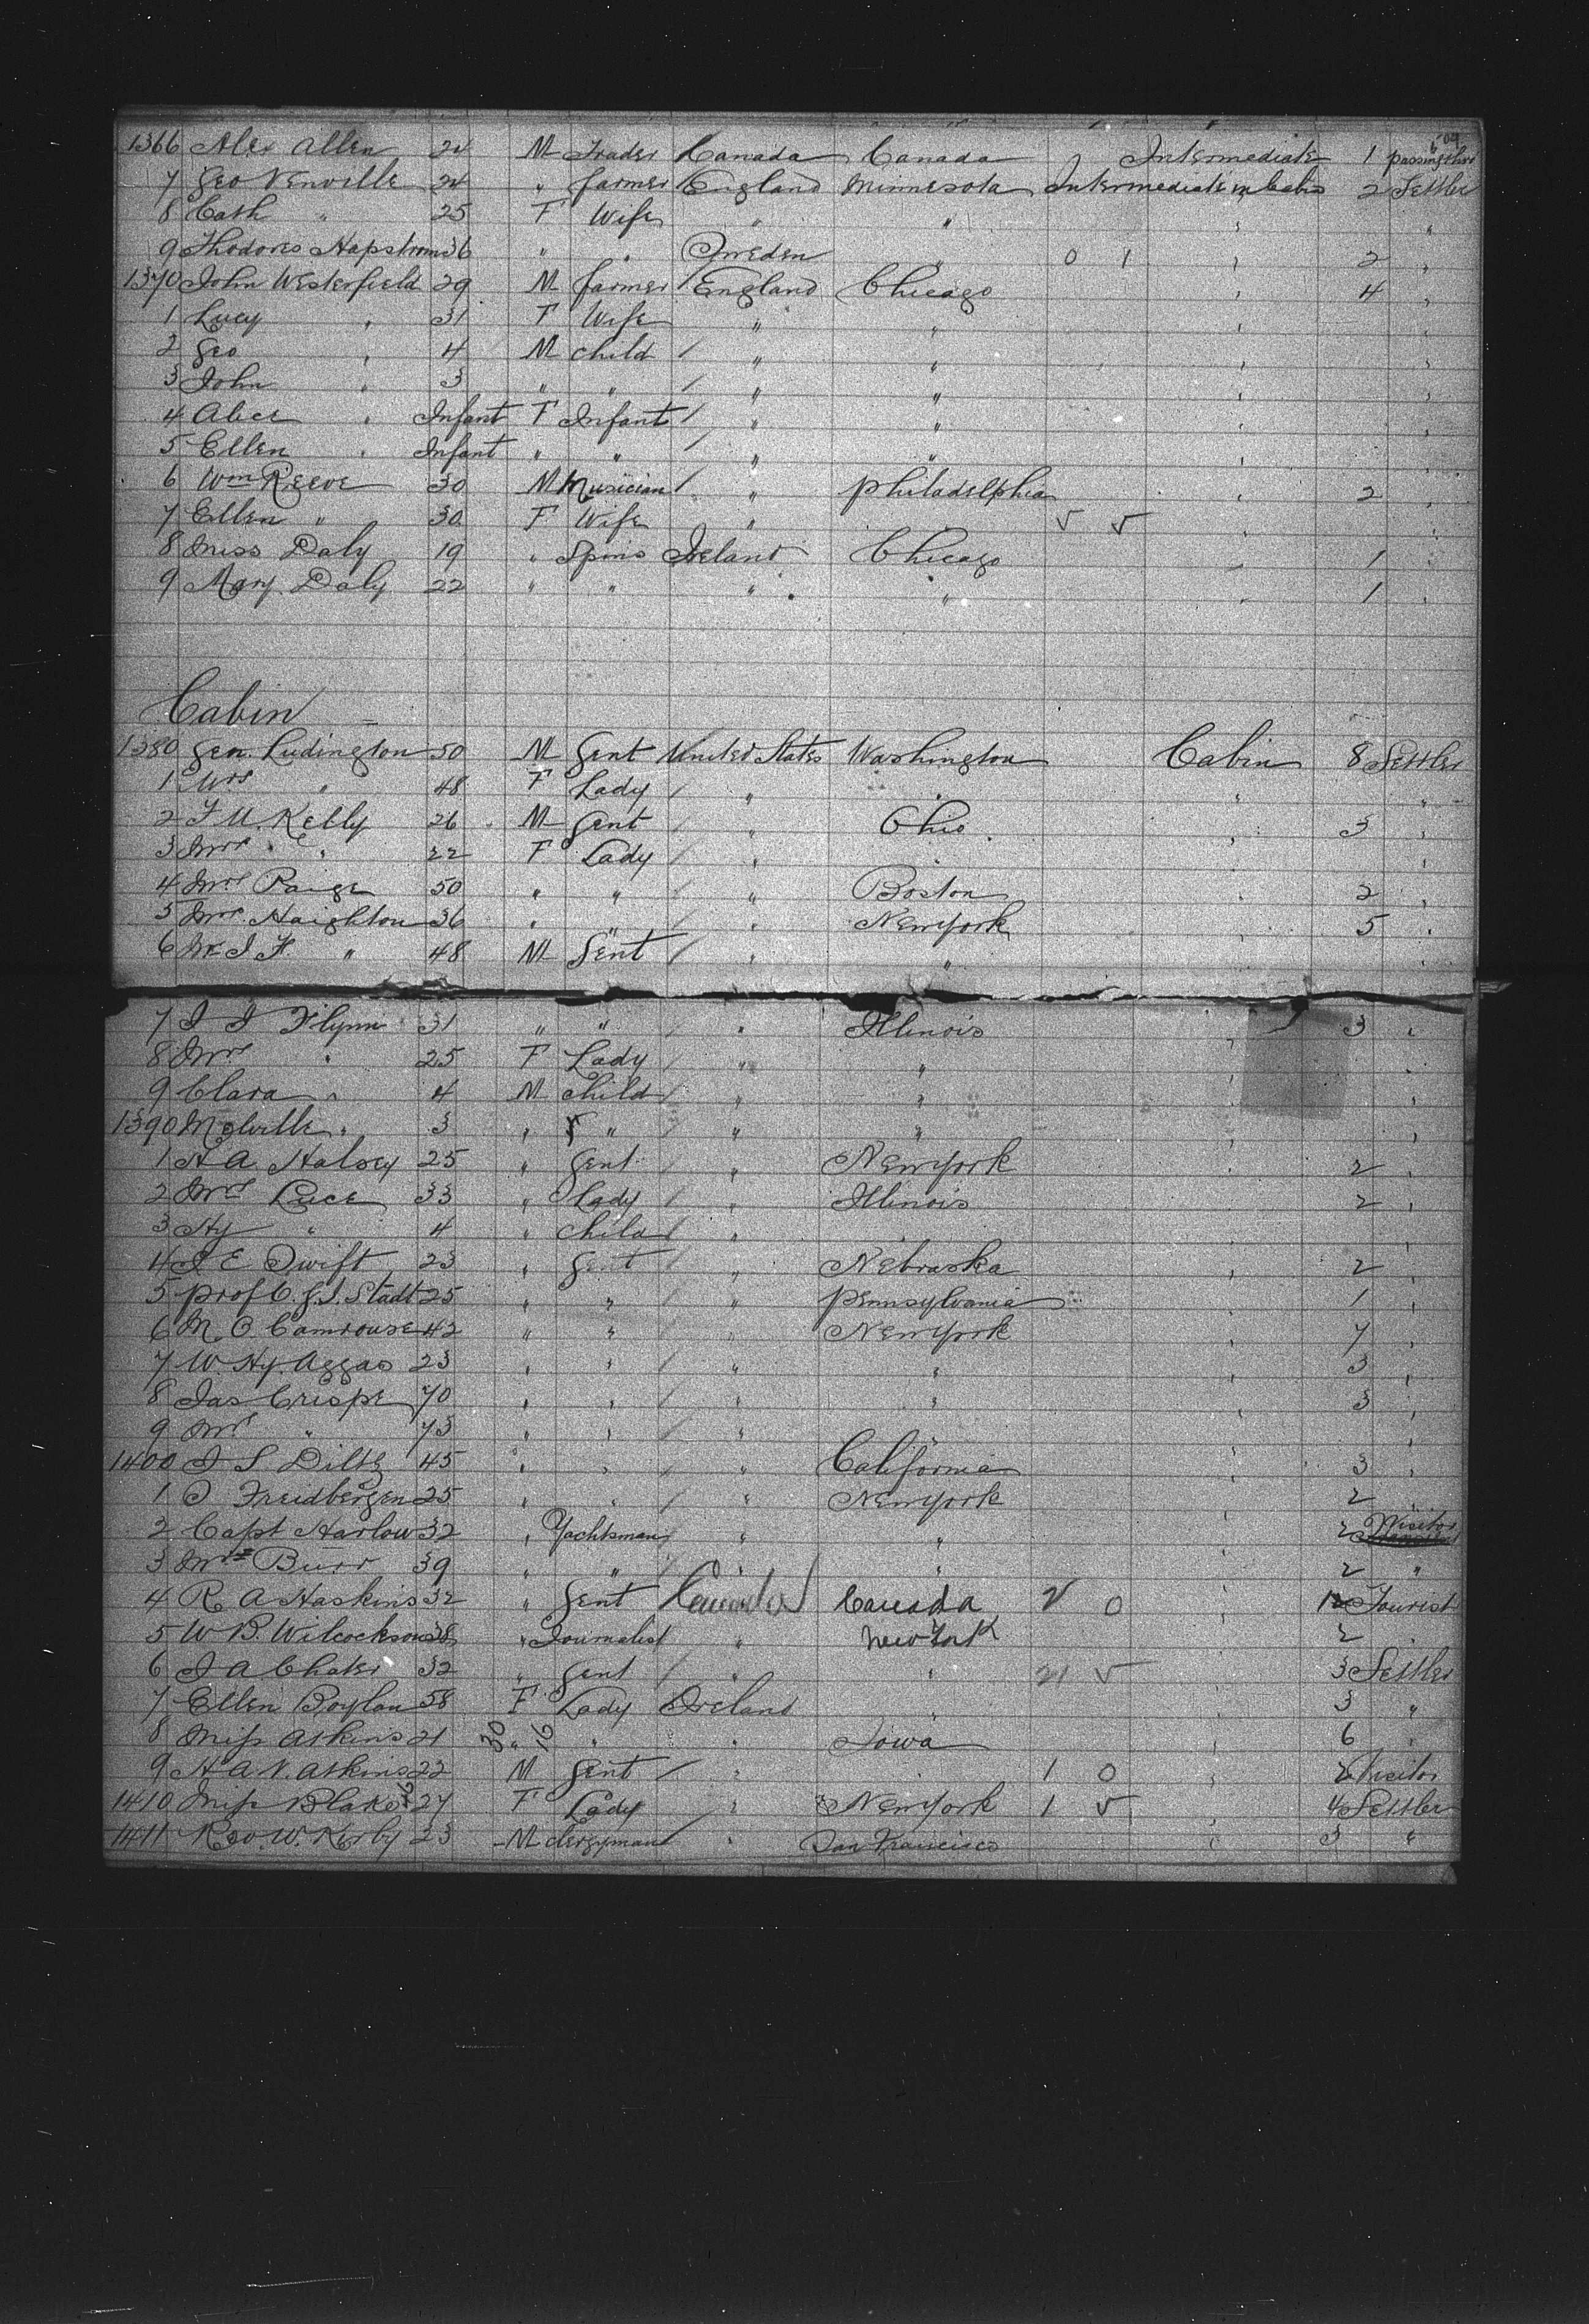 1366 Alex Allen 24 M Trader Canada Canada Intermediate 1 passing thro
7 Geo Venville 24 " farmer England Minnesota Intermediate 2 Settler
8 Cath " 25 F Wife " " " "
9 Thodores Hapstrom 36 " " Sweden " 0 1 " 2 "
1370 John Westerfield 29 M farmer England Chicago " 4 "
1 Lucy " 31 F Wife " " " "
2 Geo " 4 M child / " " " "
3 John " 3 " " / " " " "
4 Alice " Infant F Infant / " " " "
5 Ellen " Infant " " / " " " "
6 Wm Reeve 30 M Musician / " Philadelphia " 2 "
7 Ellen " 30 F Wife " " 5 5 " "
8 Miss Daly 19 " Spins Ireland Chicago " 1 "
9 Mary Daly 22 " " " " " 1 "
Cabin
1380 Gen. Ludington 50 M Gent United States Washington Cabin 8 Settler
1 Mrs " 48 F Lady / " " " "
2 F. M. Kelly 26 M Gent " Ohio " 3 "
3 Mrs " 22 F Lady / " " "
4 Mrs Paige 50 " " / " Boston " 2 "
5 Mrs. Haighton 36 " " / " New York " 5 "
6 Mr J F " 48 M Gent / " " " "
7 J J Flynn 31 " " / " Illinois 3 "
8 Mrs " 25 F Lady / " " " "
9 Clara " 4 M child / " " " "
1390 Melville " 3 " " / " " " "
1 H A Halsey 25 " Gent / " New York " 2 "
2 Mrs Luce 33 " Lady / " Illinois " 2 "
3 Hy " 4 " child / " " " "
4 J E Swift 23 " Gent / " Nebraska " 2 "
5 Prof C. G. J. Stadt 25 " " / " Pennsylvania " 1 "
6 M. O. Camrouse 42 " " / " New York " 7 "
7 W. Hy. Aggas 23 " " / " " " 3 "
8 Jas Crispe 70 " " / " " " 3 "
9 Mrs " 73 " " / " "
1400 J S Diltz 45 " " / " California " 3 "
1 S Freidbergen 25 " " / " New York " 2 "
2 Capt Harlow 32 " Yachtsman / " " " 2 Visitor
3 Mrs Burr 39 " " / " " " 2 "
4 R A Haskins 32 " Gent Canada Canada 2 0 " 12 Tourist
5 W B. Wilcockson 38 " Journalist " New York 2 "
6 J A Chater 32 " Gent / " " 21 5 " 3 Settler
7 Ellen Boylan 58 F Lady Ireland " 3 "
8 Miss Askins 21 30 " 16 " " Iowa " 6 "
9 H A V. Askins 22 M Gent / " 1 0 " 2 Visitor
1410 Miss Blake 27 F Lady " New York 1 5 " 4 Settler
1411 Rev. W. Kirby 23 M clergyman / " San Francisco " 3 "